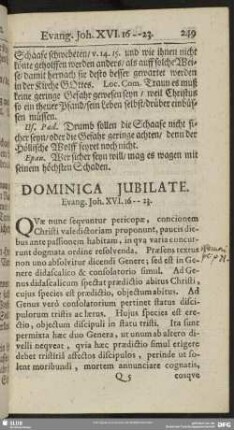 Evang. Joh. XVI. 16 -- 23. 249
Schaafe schwebeten/ v. 14. 15. und wie ihnen nicht
bitt geholffen werden anders/ als auff solche Wei-
se damit hernach sie desto besser gewartet werden
in der Kirche GOttes. Loc. Com. Traun es muß
keine geringe Gefahr gewesen seyn/ weil Christus
so ein theuer Pfand/ sein Leben selbst/ drüber einbüs-
sen müssen.
Us. Pæd. Drumb sollen die Schaafe nicht si-
cher seyn/ oder die Gefahr geringe achten/ denn der
Höllische Wolff feyret noch nicht.
Epan. Wer sicher seyn will/ mag es wagen mit
seinem höchsten Schaden.
DOMINICA JUBILATE.
Evang. Joh. XVI. 16 -- 23.
Quæ nunc seqvuntur pericopæ, concionem
Christi valedictoriam proponunt, paucis die-
bus ante passionem habitam, in qva varia concur-
runt dogmata ordine resolvenda. Præsens textus
non uno absolvitur dicendi Genere; sed est in Ge-
nere didascalico & consolatorio simul. Ad Ge-
nus didascalicum spectat prædictio abitus Christi,
cujus species est prædictio, objectum abitus. Ad
Genus verò consolatorium pertinet status disci-
pulorum tristis ac letus. Hujus species est ere-
ctio, objectum discipuli in statu tristi. Ita sunt
permixta hæc duo Genera, ut unum ab altero di-
velli neqveat, qvia hæc prædictio simul erigere
debet tristitiâ affectos discipulos, perinde ut so-
lent moribundi, mortem annunciare cognatis,
Q 5 eosqve